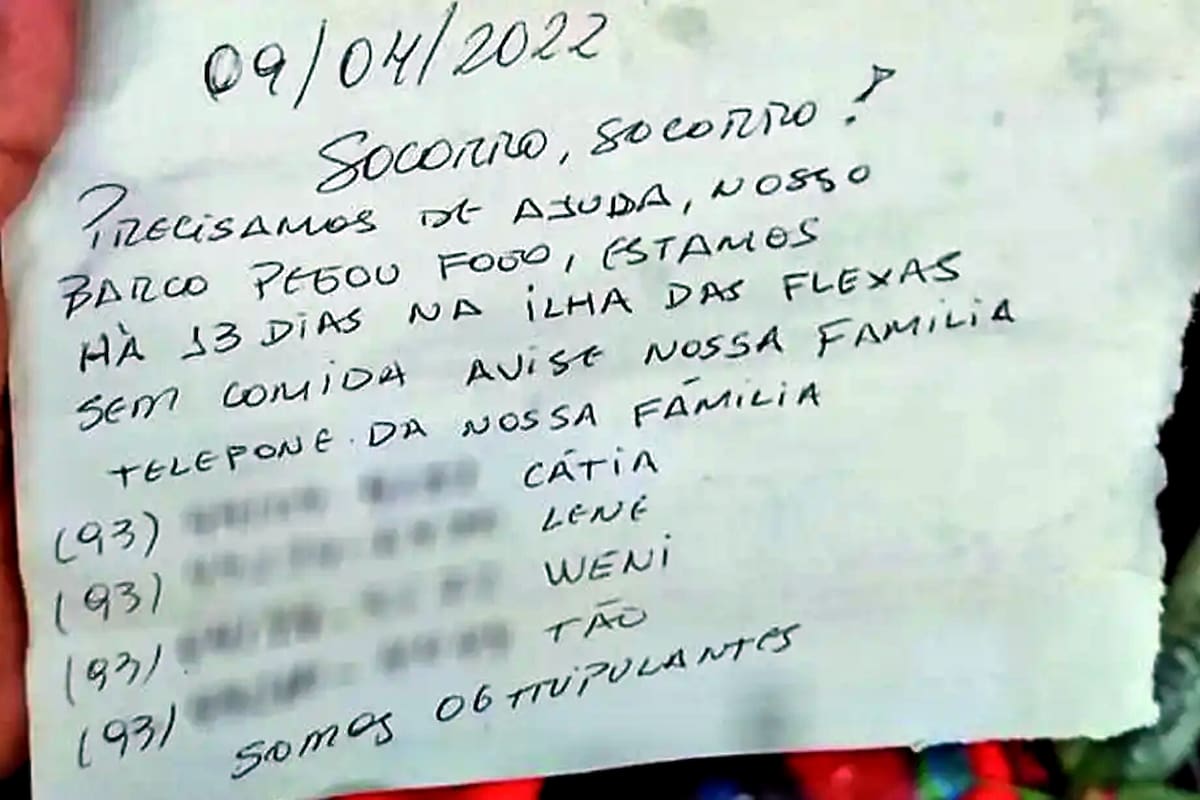 09/04/2022
SOCORRO, SOCORRO!
PRECISAMOS DE AJUDA, NOSSO
BARCO PEGOU FOGO, ESTAMOS
HÀ 13 DIAS NA ILHA DAS FLEXAS
SEM COMIDA AVISE NOSSA FAMILIA
TELEFONE. DA NOSSA FÁMILIA
(93) CÁTIA
(93) LENE
(93) WENI
(93) TÃO
SOMOS 06 TRIPULANTES